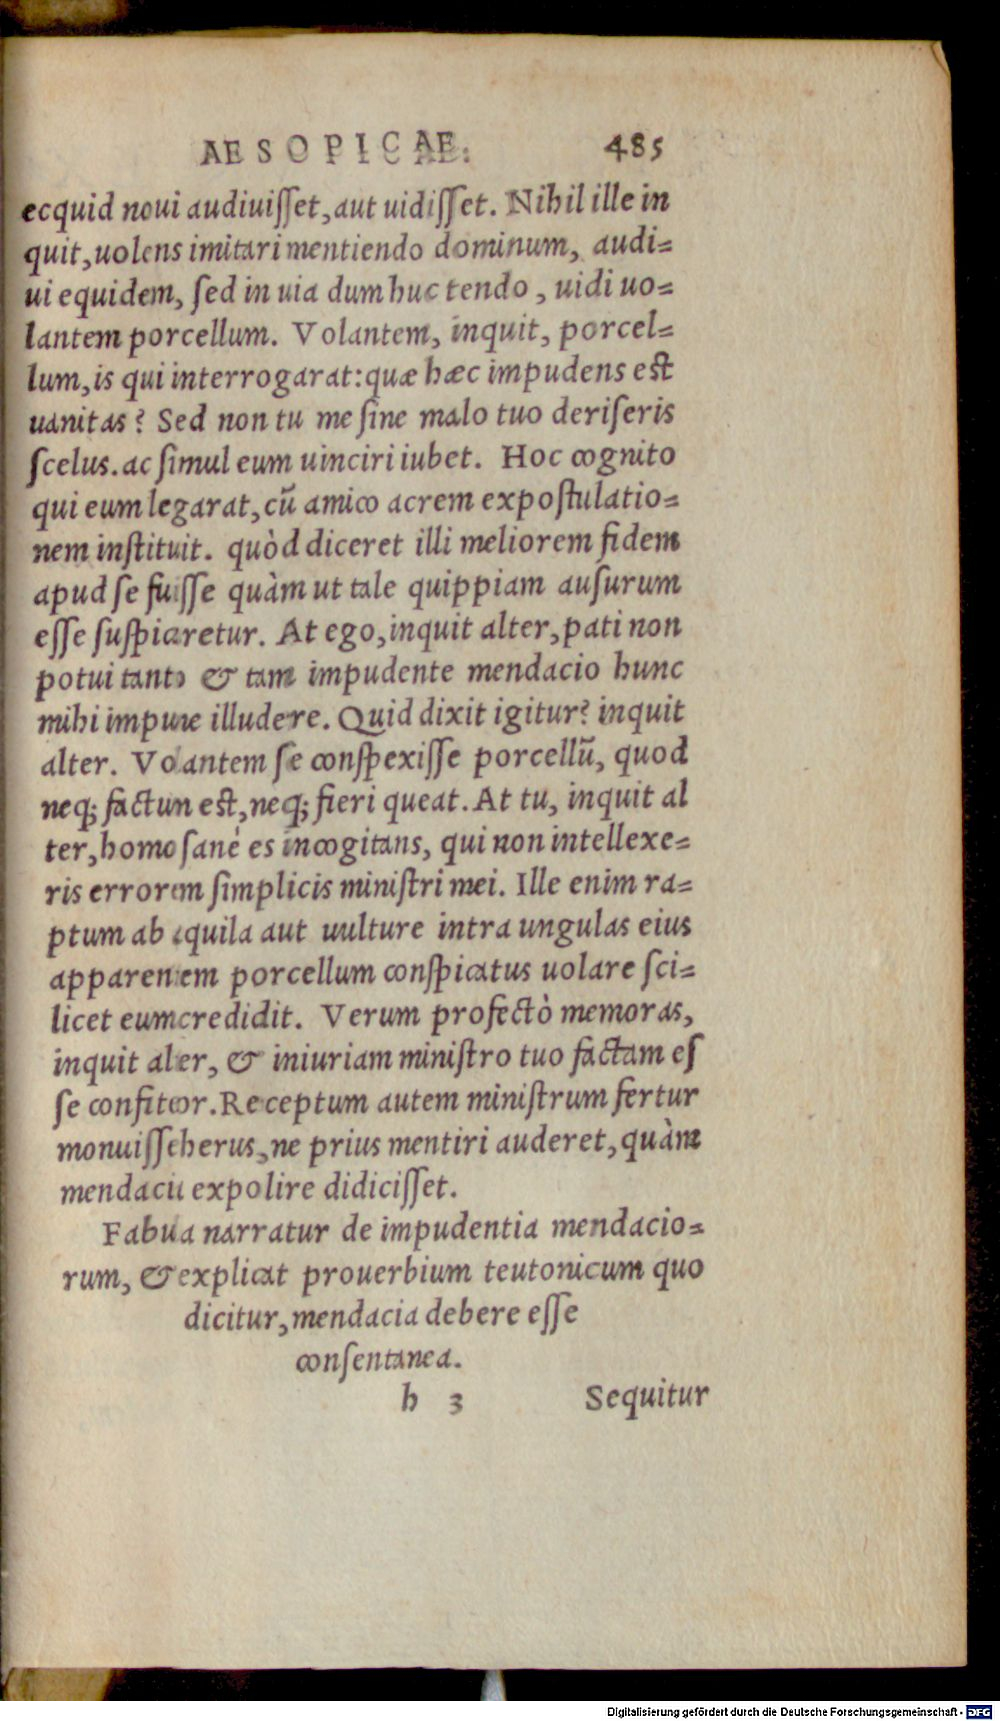 AESOPICAE. 485
ecquid noui audiuiſſet, aut uidiſſet. Nihil ille in
quit, uolens imitari mentiendo dominum, audi=
ui equidem, ſed in uia dum huc tendo, uidi uo=
lantem porcellum. Volantem, inquit, porcel=
lum, is qui interrogarat: quæ hæc impudens est
uanitas? Sed non tu me ſine malo tuo deriſeris
ſcelus. ac ſimul eum uinciri iubet. Hoc cognito
qui eum legarat, cū amico acrem expoſtulatio=
nem inſtituit. quòd diceret illi meliorem fidem
apud ſe fuiſſe quàm ut tale quippiam auſurum
eſſe ſuſpicaretur. At ego, inquit alter, pati non
potui tanto & tam impudente mendacio hunc
mihi impune illudere. Quid dixit igitur? inquit
alter. Volantem ſe conſpexiſſe porcellū, quod
neq; factum est, neq; fieri queat. At tu, inquit al
ter, homo ſanè es incogitans, qui non intellexe=
ris errorem ſimplicis miniſtri mei. Ille enim ra=
ptum ab aquila aut uulture intra ungulas eius
apparentem porcellum conſpicatus uolare ſci=
licet eum credidit. Verum profectò memoras,
inquit alter, & iniuriam miniſtro tuo factam eſ
ſe confiteor. Receptum autem miniſtrum fertur
monuiſſe herus, ne prius mentiri auderet, quàm
mendacii expolire didiciſſet.
Fabula narratur de impudentia mendacio=
rum, & explicat prouerbium teutonicum quo
dicitur, mendacia debere eſſe
conſentanea.
h 3 Sequitur
Digitalisierung gefördert durch die Deutsche Forschungsgemeinschaft - DFG